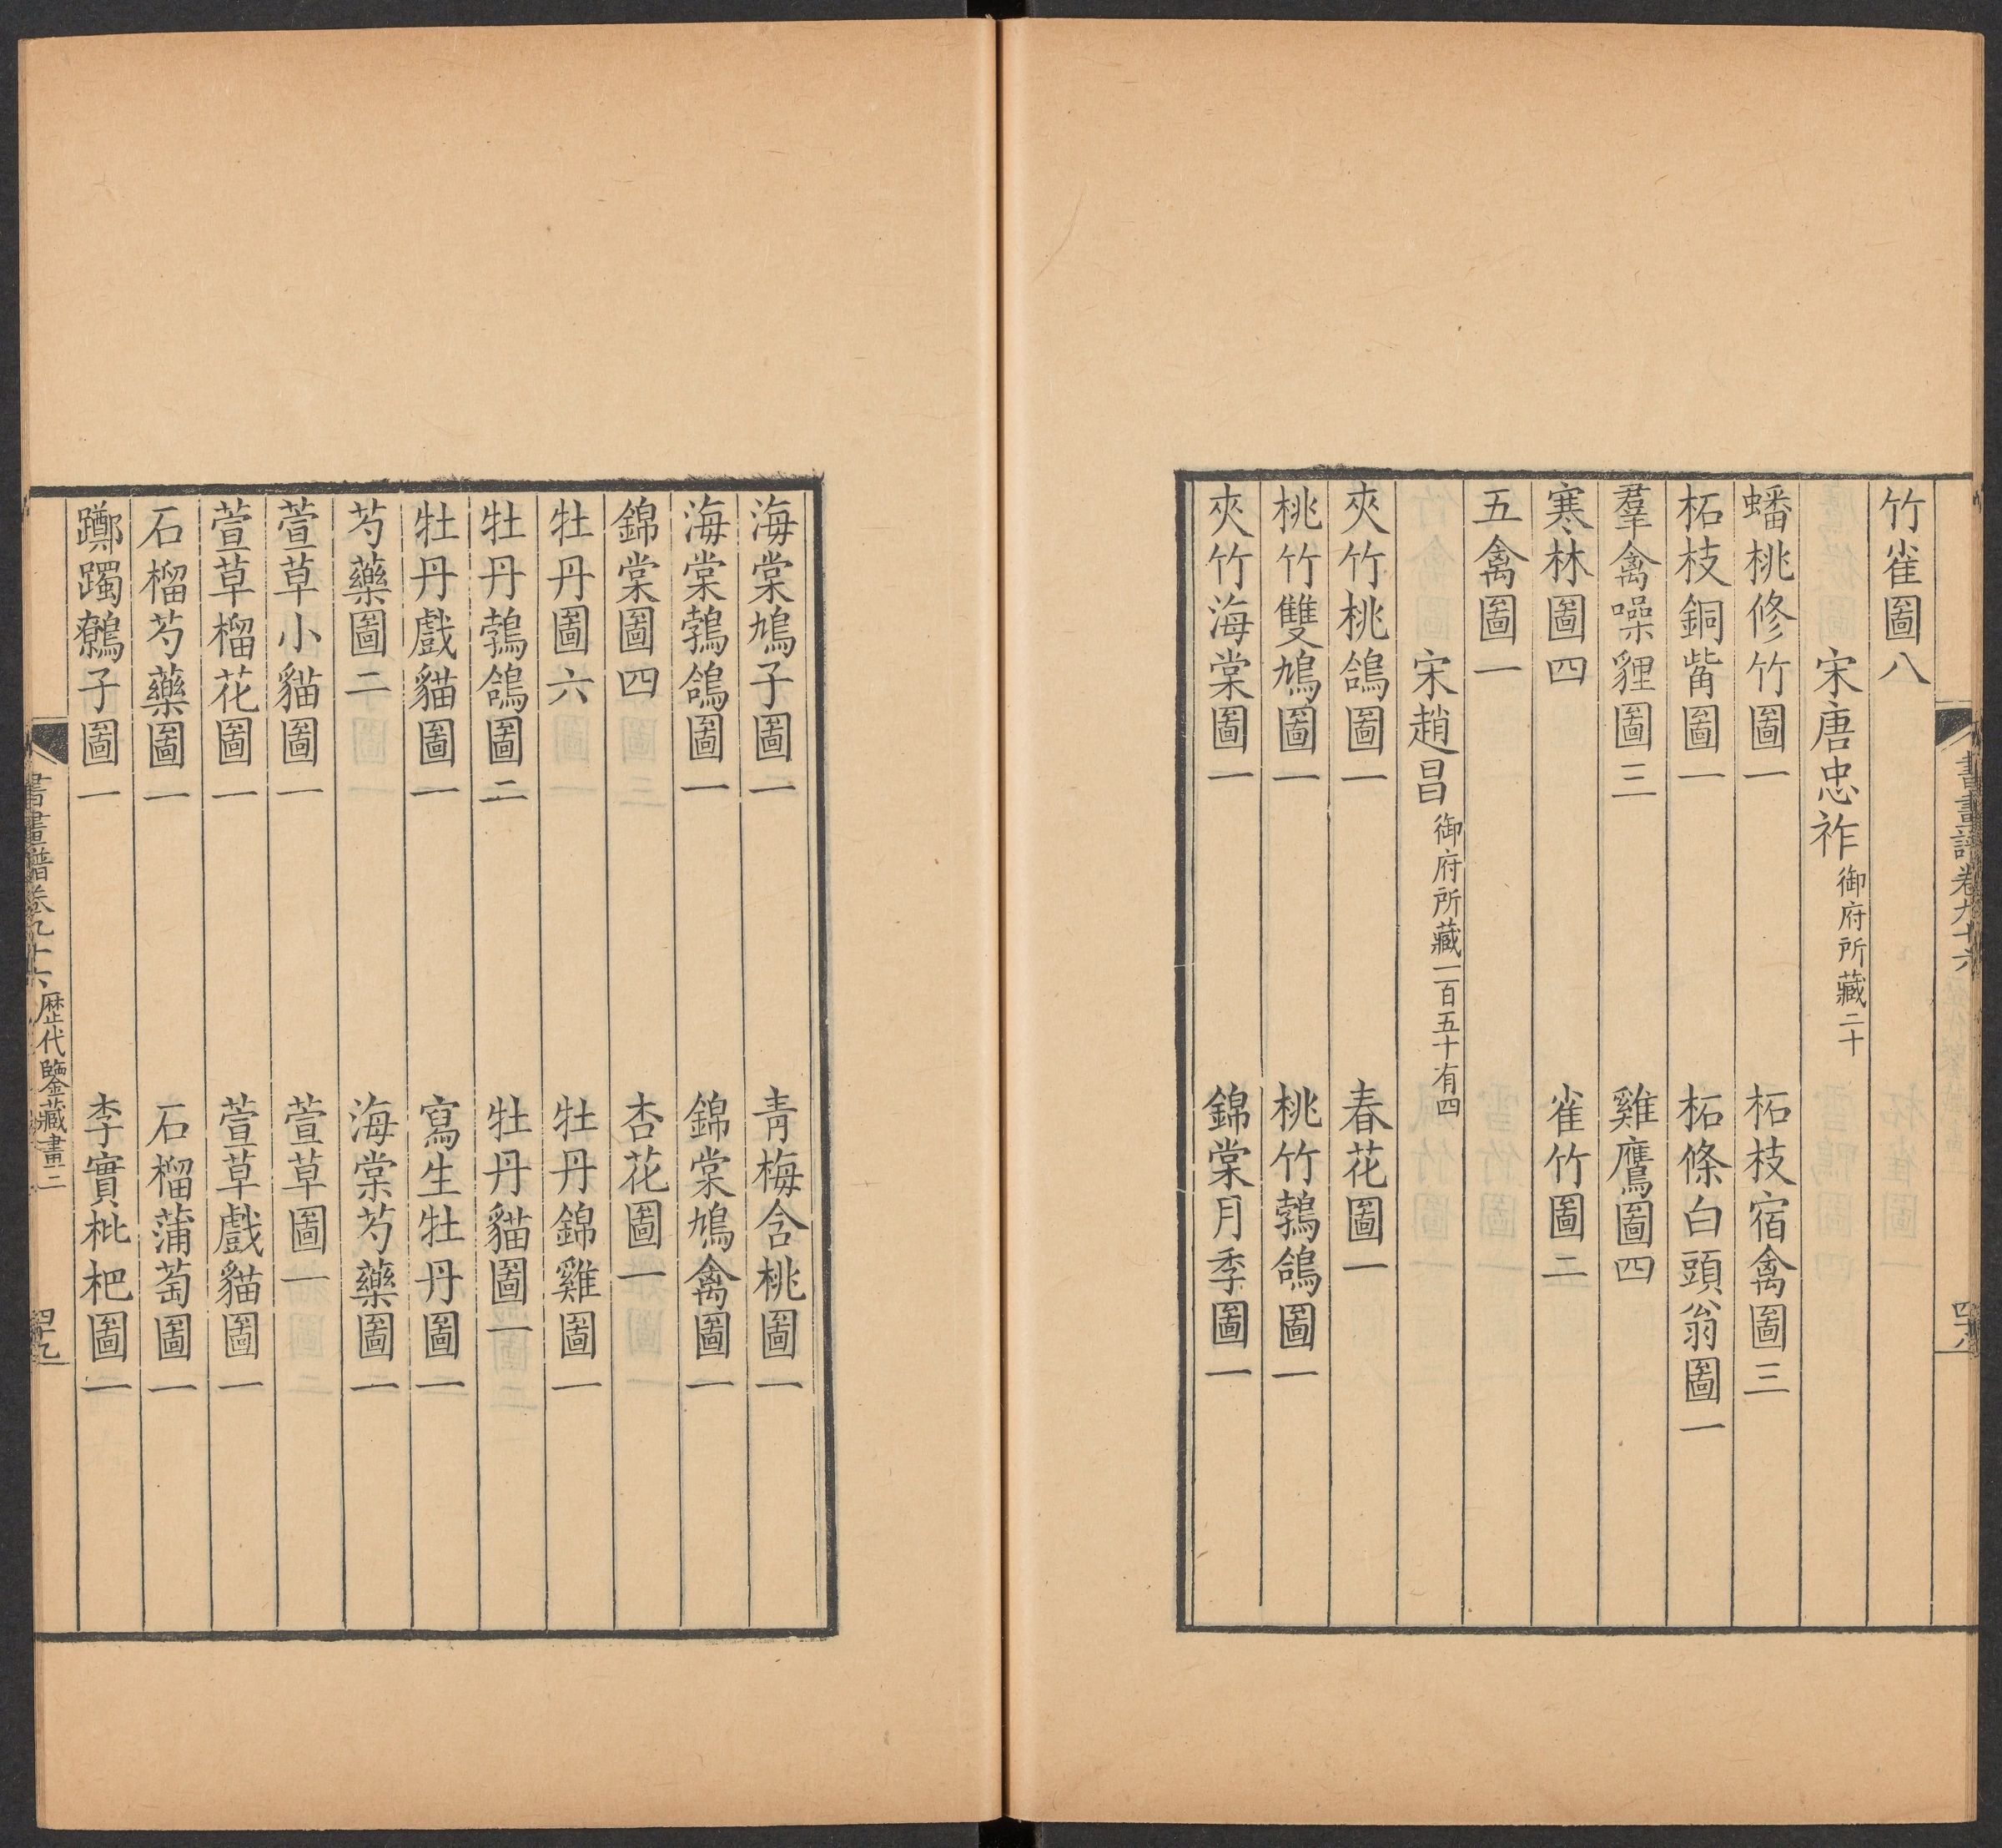 書畫譜卷九十六
四十八
竹雀圖八
宋唐忠祚 御府所藏二十
蟠桃修竹圖一 柘枝宿禽圖三
柘枝銅觜圖一 柘條白頭翁圖一
羣禽噪貍圖三 雞鷹圖四
寒林圖四 雀竹圖二
五禽圖一
宋趙昌 御府所藏一百五十有四
夾竹桃鴿圖一 春花圖一
桃竹雙鳩圖一 桃竹鵓鴿圖一
夾竹海棠圖一 錦棠月季圖一
海棠鳩子圖一 青梅含桃圖一
海棠鵓鴿圖一 錦棠鳩禽圖一
錦棠圖四 杏花圖一
牡丹圖六 牡丹錦雞圖一
牡丹鵓鴿圖二 牡丹貓圖一
牡丹戲貓圖一 寫生牡丹圖一
芍藥圖二 海棠芍藥圖一
萱草小貓圖一 萱草圖一
萱草榴花圖一 萱草戲貓圖一
石榴芍藥圖一 石榴蒲萄圖一
躑躅鷯子圖一 李實枇杷圖一
書畫譜卷九十六 歷代鑒藏畫二
四十九